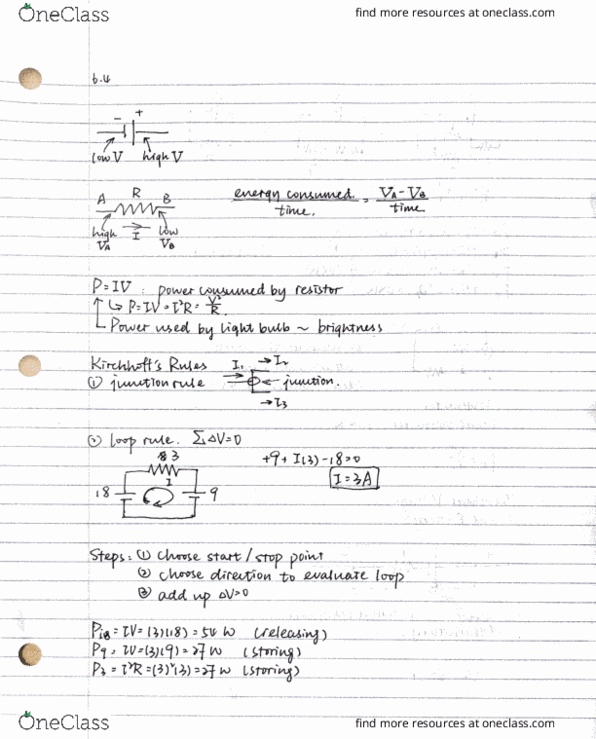 OneClass
find more resources at oneclass.com
6.4
- +
low V high V
A R B
energy consumed / time = VA - VB / time
high VA I low VB
P = IV : power consumed by resistor
↳ P = IV = I²R = V²/R
Power used by light bulb ~ brightness
Kirchhoff's Rules I1 → I2
① junction rule junction.
→ I3
② loop rule. Σ ΔV=0
3 +9 + I(3) - 18 = 0
I I = 3A
18 9
Steps: ① choose start / stop point
② choose direction to evaluate loop
③ add up ΔV=0
P18 = IV = (3)(18) = 54 W (releasing)
P9 = IV = (3)(9) = 27 W (storing)
P3 = I²R = (3)²(3) = 27 W (storing)
OneClass
find more resources at oneclass.com